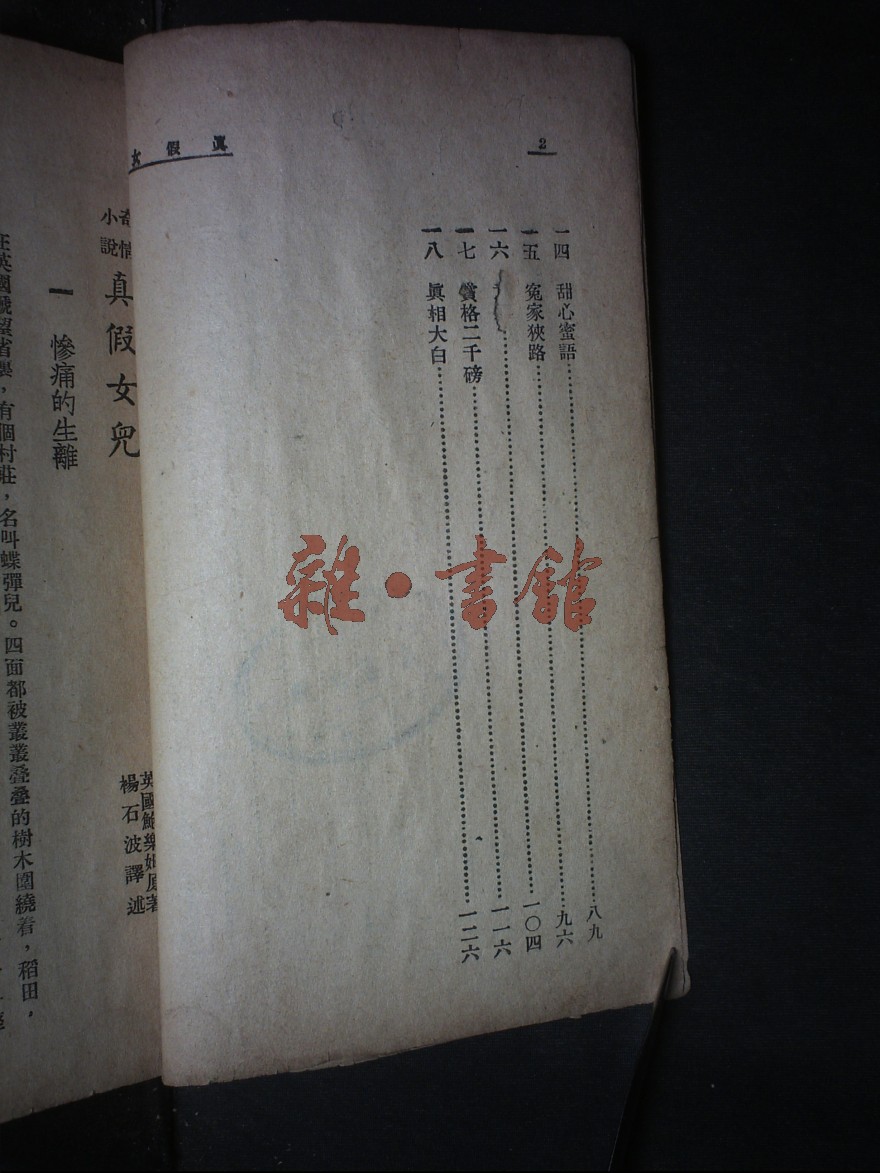 2
眞假女
一四　甜心蜜語……八九
一五　冤家狹路……九六
一六　……一〇四
一七　賞格二千磅……一一六
一八　眞相大白……一二六
奇情
小說
真假女兒
楊石波譯述
一　慘痛的生離
有個村莊，名叫蝶彈兒。四面都被叢叢叠叠的樹木圍繞着，稻田，
雜·書館